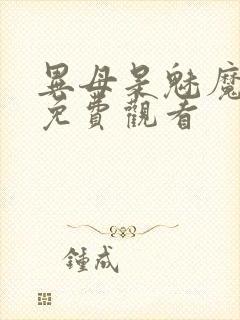 異母呆魅魔
免費觀看
鍾成